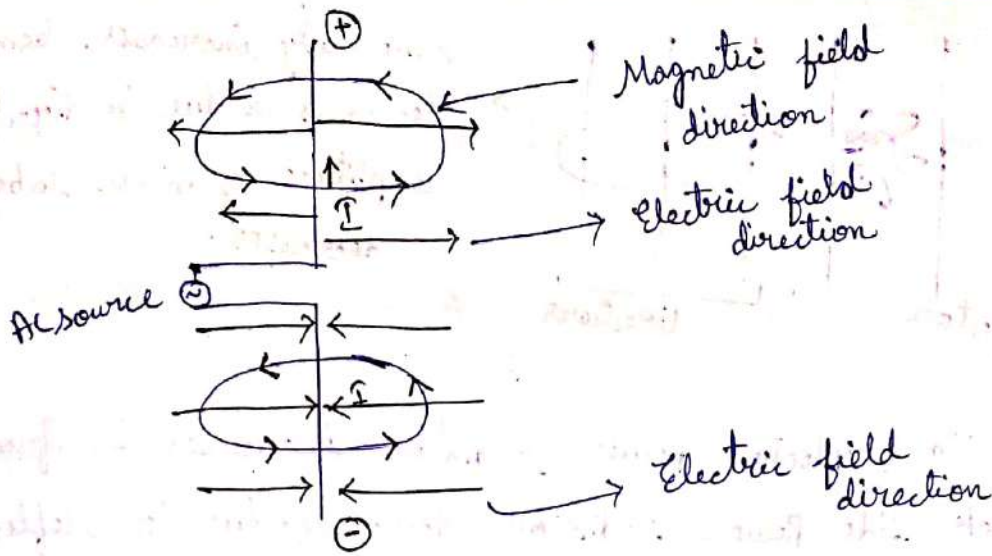 +
Magnetic field
direction
I
Electric field
direction
AC source ~
I
Electric field
direction
-